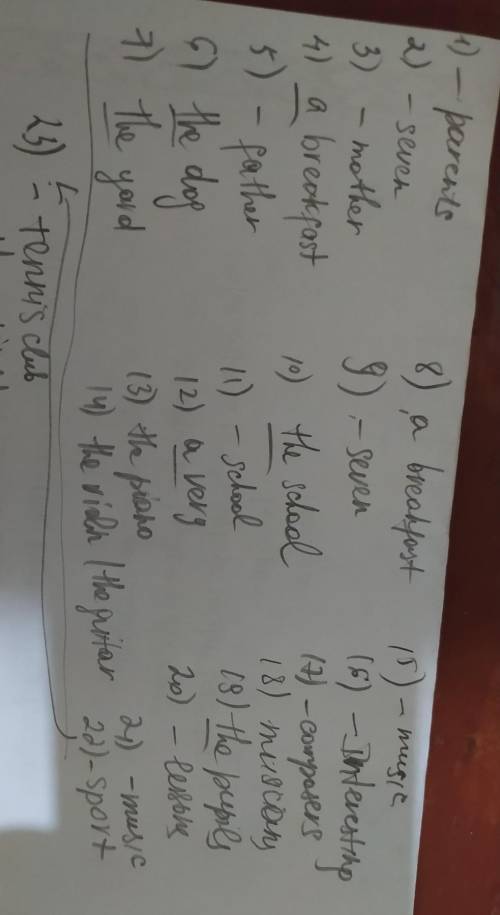 1) - parents
2) - seven
3) - mother
4) a breakfast
5) - father
6) the dog
7) the yard
8) a breakfast
9) - seven
10) the school
11) - school
12) a very
13) the piano
14) the violin / the guitar
15) - music
16) - Interesting
17) - composers
18) musicians
19) the pupils
20) - lessons
21) - music
22) - sport
23) - tennis club